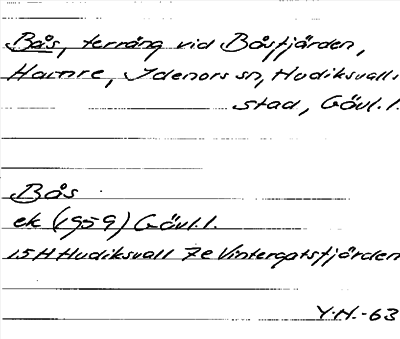 Bås, terräng vid Båsfjärden,
Hamre, Idenors sn, Hudiksvalls
stad, Gävl.l.
Bås
ek (1959) Gävl.l.
15H Hudiksvall 7e Vintergatsfjärden
Y.H.-63